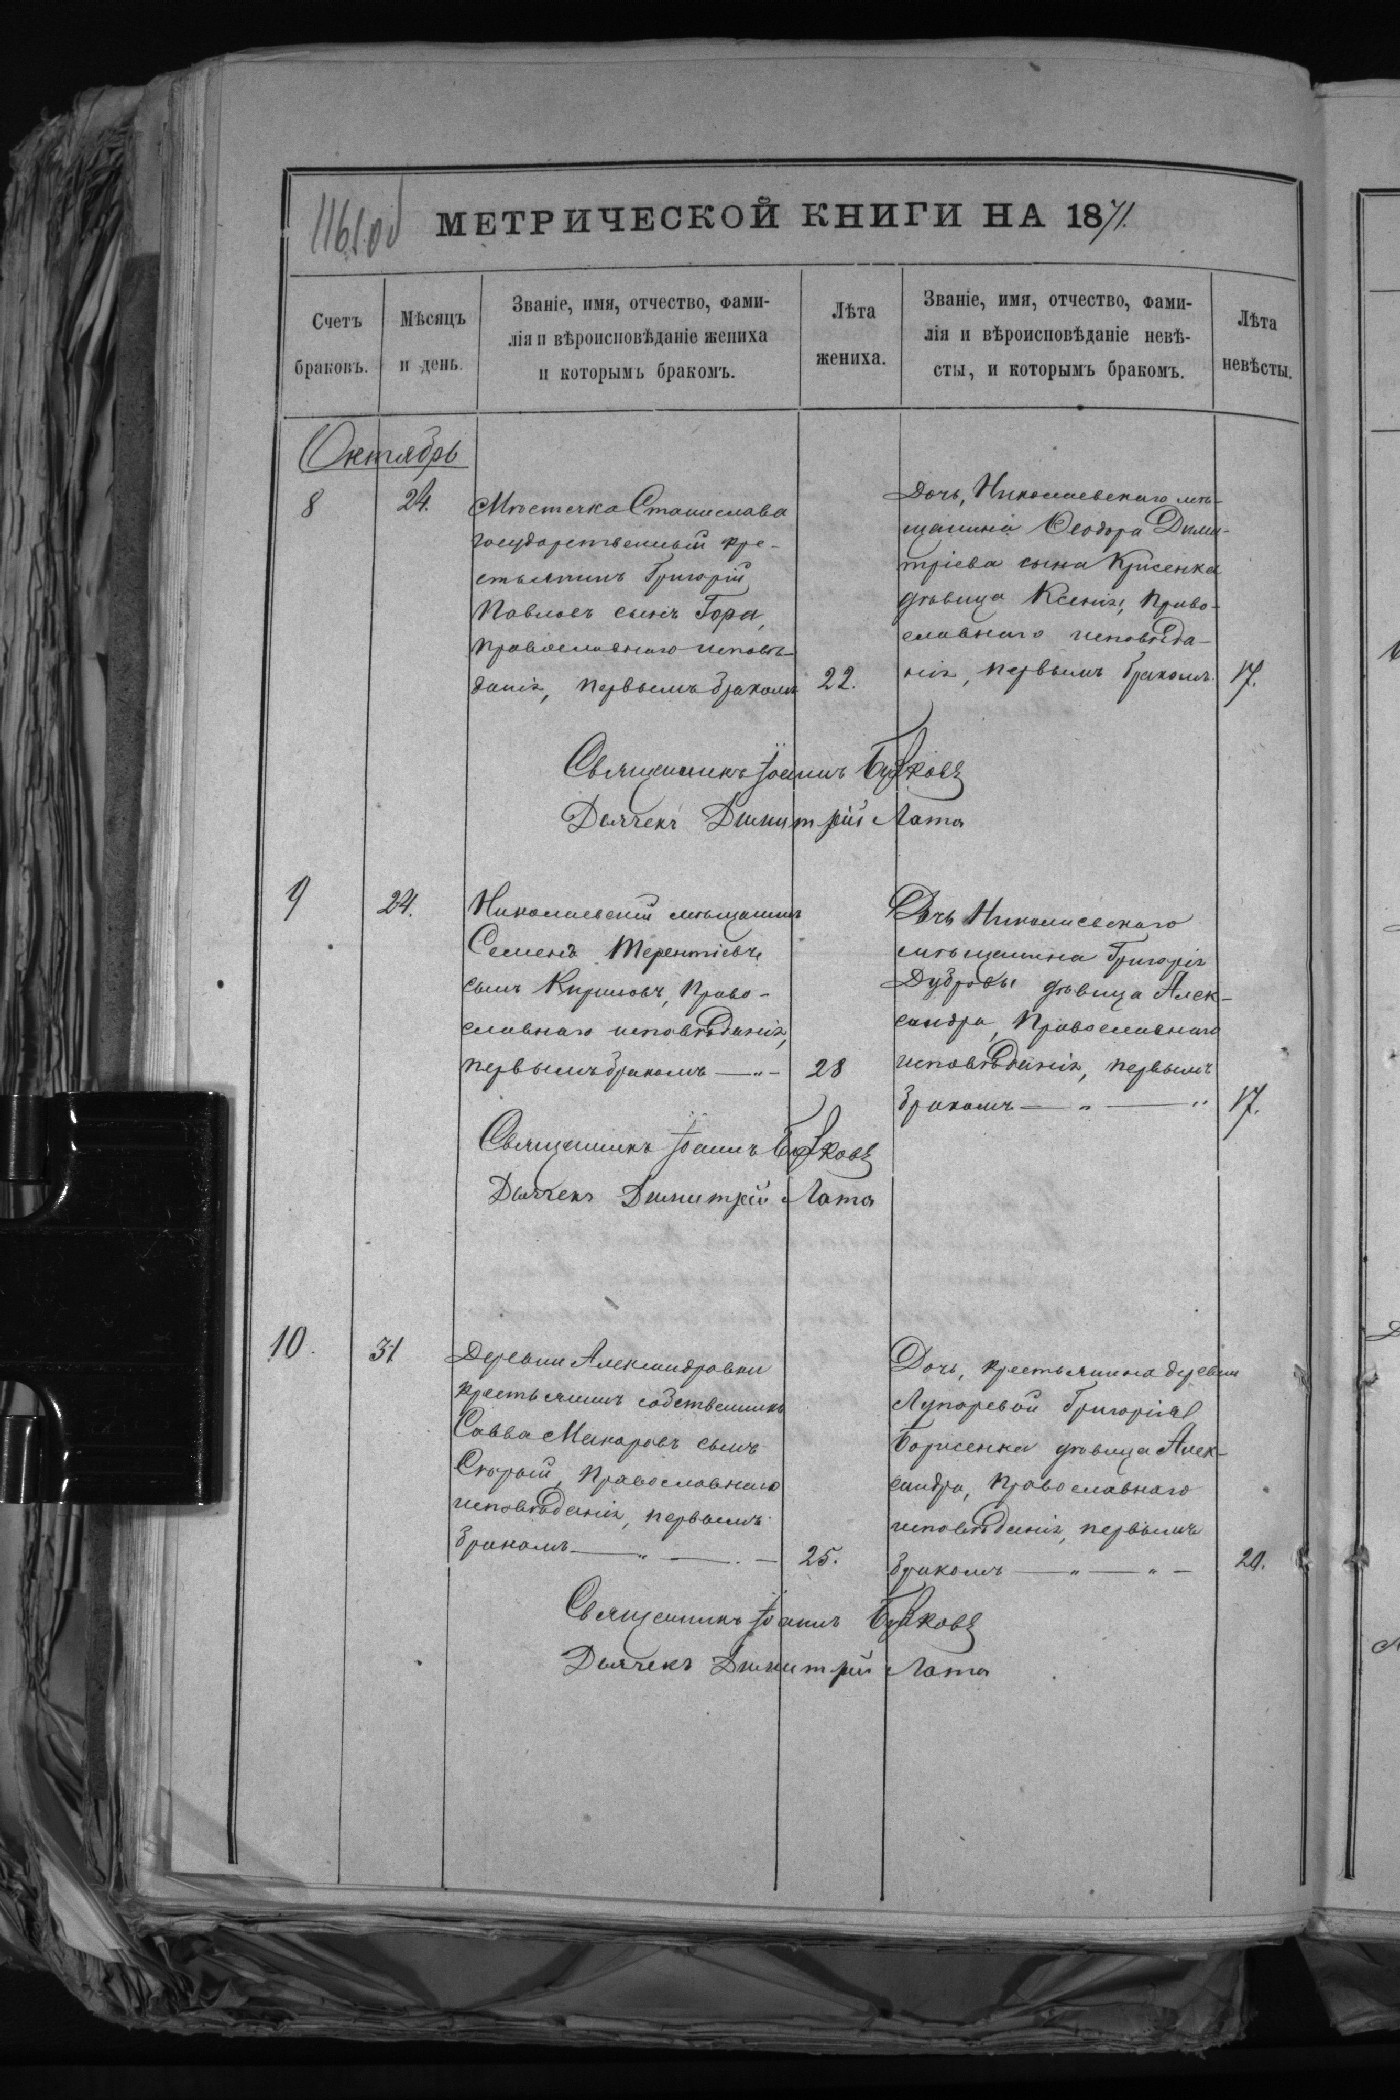 1161 об
МЕТРИЧЕСКОЙ КНИГИ НА 1871.
Счетъ браковъ.
Мѣсяцъ и день.
Званіе, имя, отчество, фами-
лія и вѣроисповѣданіе жениха
и которымъ бракомъ.
Лѣта жениха.
Званіе, имя, отчество, фами-
лія и вѣроисповѣданіе невѣ-
сты, и которымъ бракомъ.
Лѣта невѣсты.
Октябрь
8
24.
Мѣстечка Станислава
государственный кре-
стьянинъ Григорій
Павловъ сынъ Гора,
православнаго исповѣ-
данія, первымъ бракомъ
22.
Дочь, Николаевскаго мѣ-
щанина Ѳеодора Дими-
тріева сына Крисенка
дѣвица Ксенія, право-
славнаго исповѣда-
нія, первымъ бракомъ.
17.
Священникъ Іоаннъ
Дьячекъ Димитрій Лата
9
24.
Николаевскій мѣщанинъ
Семенъ Терентіевъ
сынъ Кириловъ, право-
славнаго исповѣданія,
первымъ бракомъ — „ —
28
Дочь Николаевскаго
мѣщанина Григорія
Дубровы дѣвица Алек-
сандра, православнаго
исповѣданія, первымъ
бракомъ — „ — „
17.
Священникъ Іоаннъ
Дьячекъ Димитрій Лата
10.
31
Деревни Александровки
крестьянинъ собственникъ
Савва Макаровъ сынъ
Скорый, православнаго
исповѣданія, первымъ
бракомъ — „ — . —
25.
Дочь, крестьянина деревни
Лупаревой Григорія
Борисенка дѣвица Алек-
сандра, православнаго
исповѣданія, первымъ
бракомъ — „ — „ —
20.
Священникъ Іоаннъ
Дьячекъ Димитрій Лата